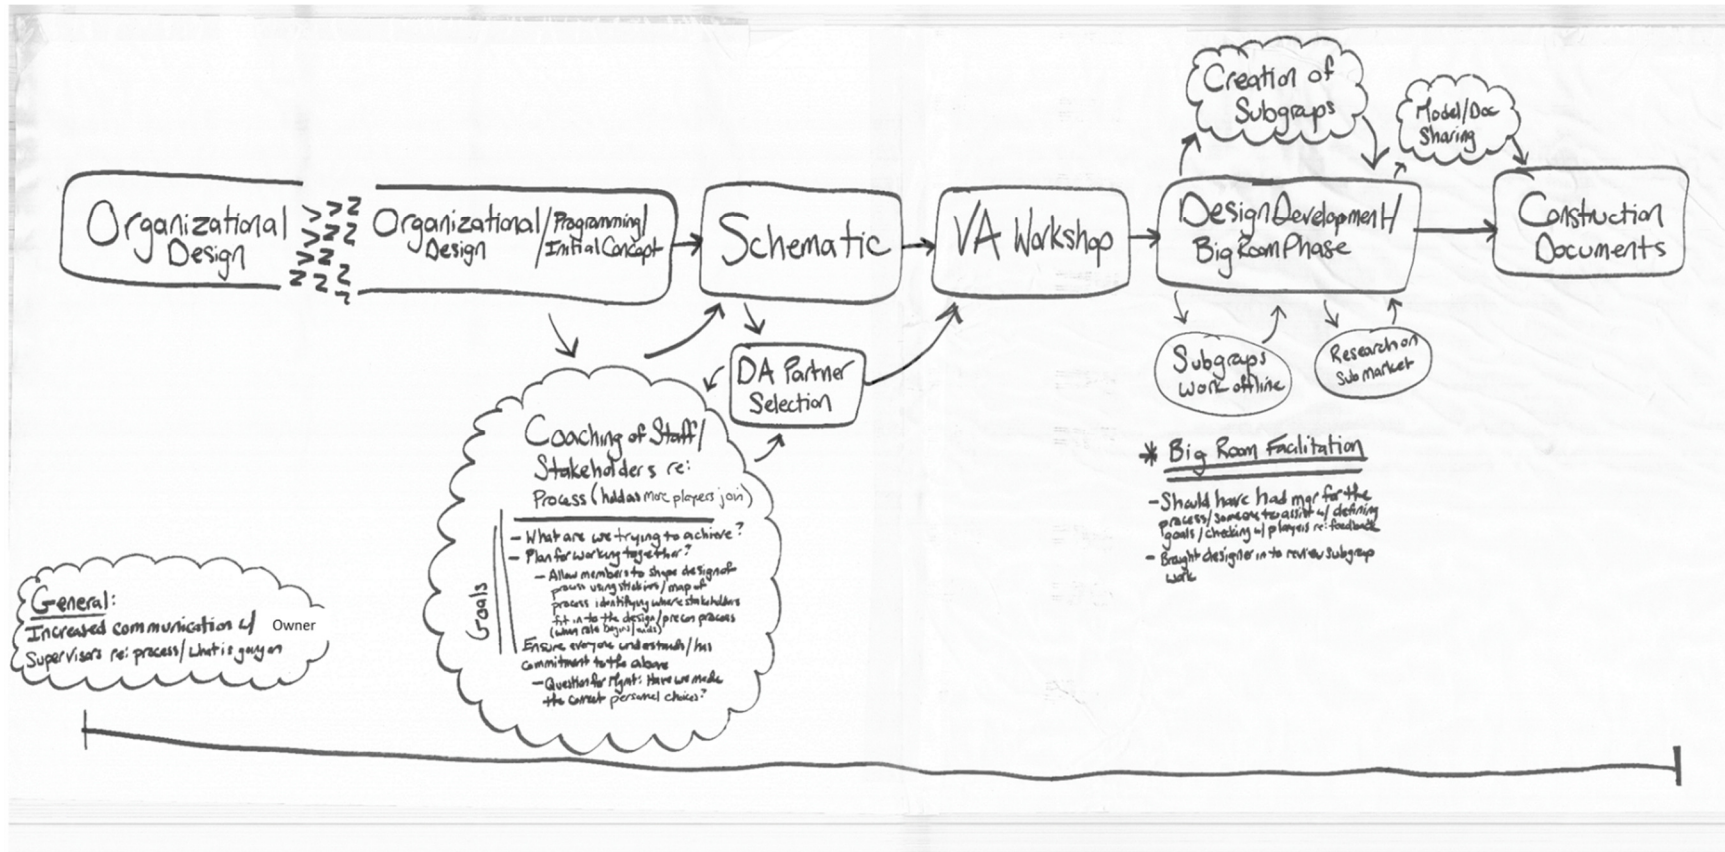 Creation of
Subgraps
Model/Doc
Sharing
Organizational
Design
>>22
>>22
>2
2 2 2
2
Organizational/
Design
Programming/
Initial Concept
Schematic
VA Workshop
Design Development/
Big Room Phase
Construction
Documents
DA Partner
Selection
Subgraps
work offline
Research on
Submarket
Coaching of Staff/
Stakeholders re:
Process (hold as more players join)
Goals
- What are we trying to achieve?
- Plan for working together?
- Allow members to shape design of
using stickies/map of
process identifying where stakeholders
fit in to the design/precon process
(when role begins/ends)
Ensure everyone understands/has
commitment to the above
- Question for Mgmt: Have we made
the correct personel choices?
* Big Room Facilitation
- Should have had mgr for the
process/someone to assist w/ defining
goals/checking w/ players re: feedback
- Brought designer in to review subgrap
work
General:
Increased communication w/ Owner
Supervisors re: process/what is going on